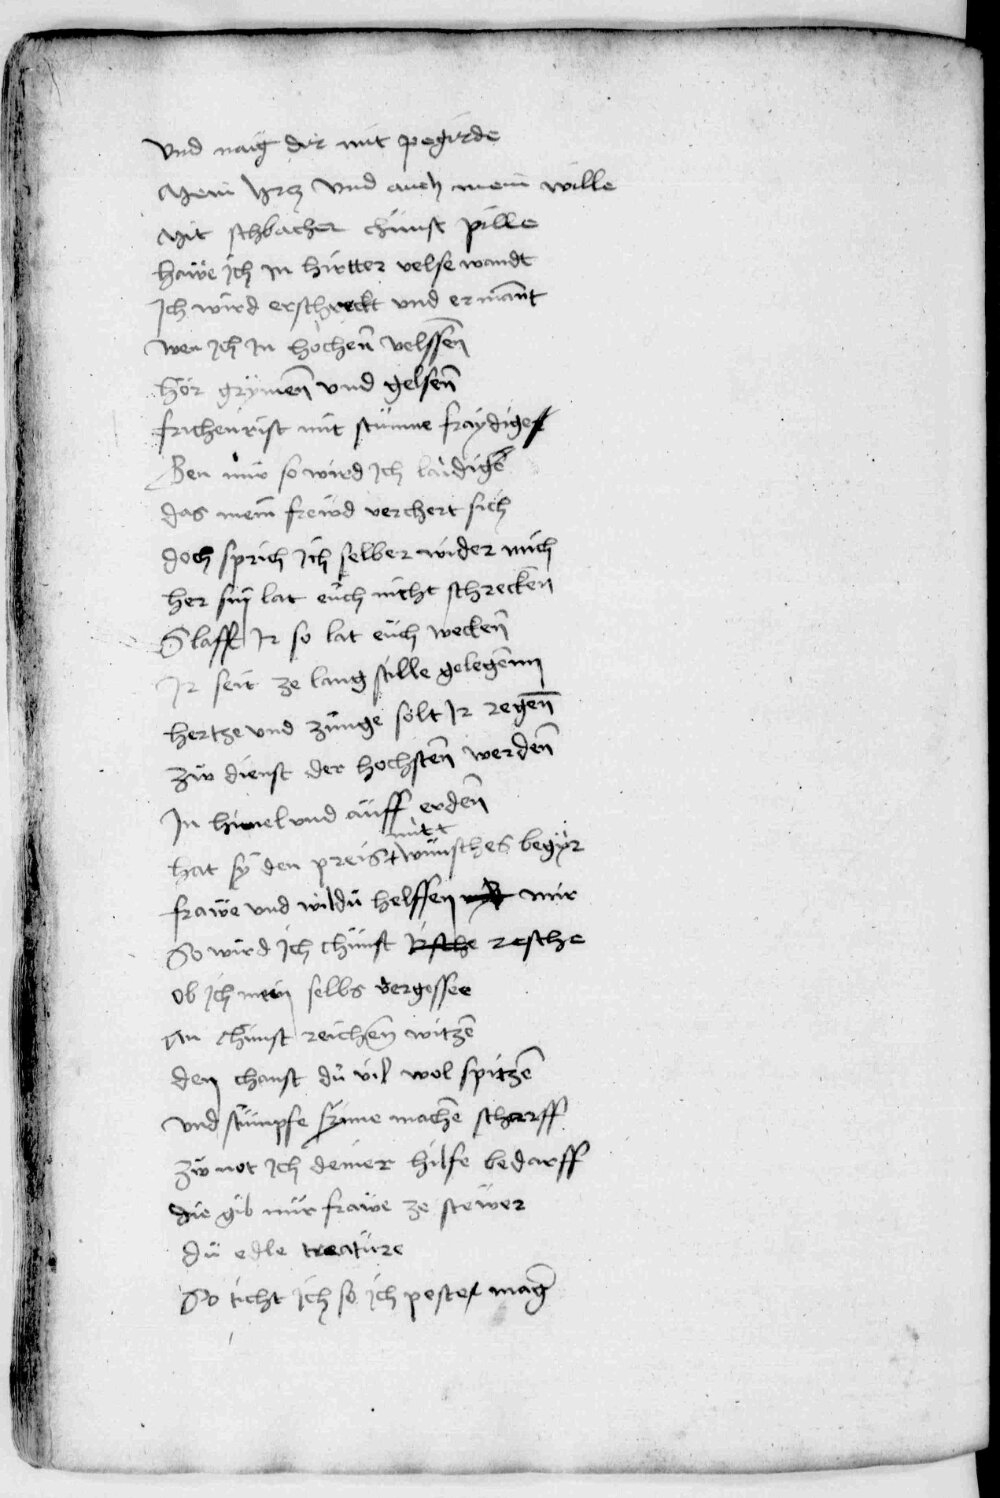 Vnd naig dir mit pegirde
Mein hrcz vnd auch mein wille
Mit schbacher chunst pille
hawe ich in hirtter velse wandt
Ich wird erschreckt vnd ermant
wen ich in hochen velssen
hör grymen vnd gelsen
mit stümme fraydiger
Ben mir so wird ich laidiger
das mein frewd verchert sich
doch sprich ich selber wider mich
her sin lat euch nicht schrecken
Slafft ir so lat euch wecken
Ir seit ze lang stille gelegenn
hertze vnd zunge solt ir regenn
zw dienst der hochsten werden
In himel vnd auff erden
hat sy den preis mitt wünsches begyr
frawe vnd wildu helffen mir
So wird ich chunst resche
ob ich mein selbs vergesse
An chunst reichen witzen
den chanst dü vil wol spitzen
vnd stümpfe sinne machen scharff
zw not ich deiner hilfe bedarff
die gib mir frawe ze stewer
Dü edle creature
So ticht ich so ich pester mag